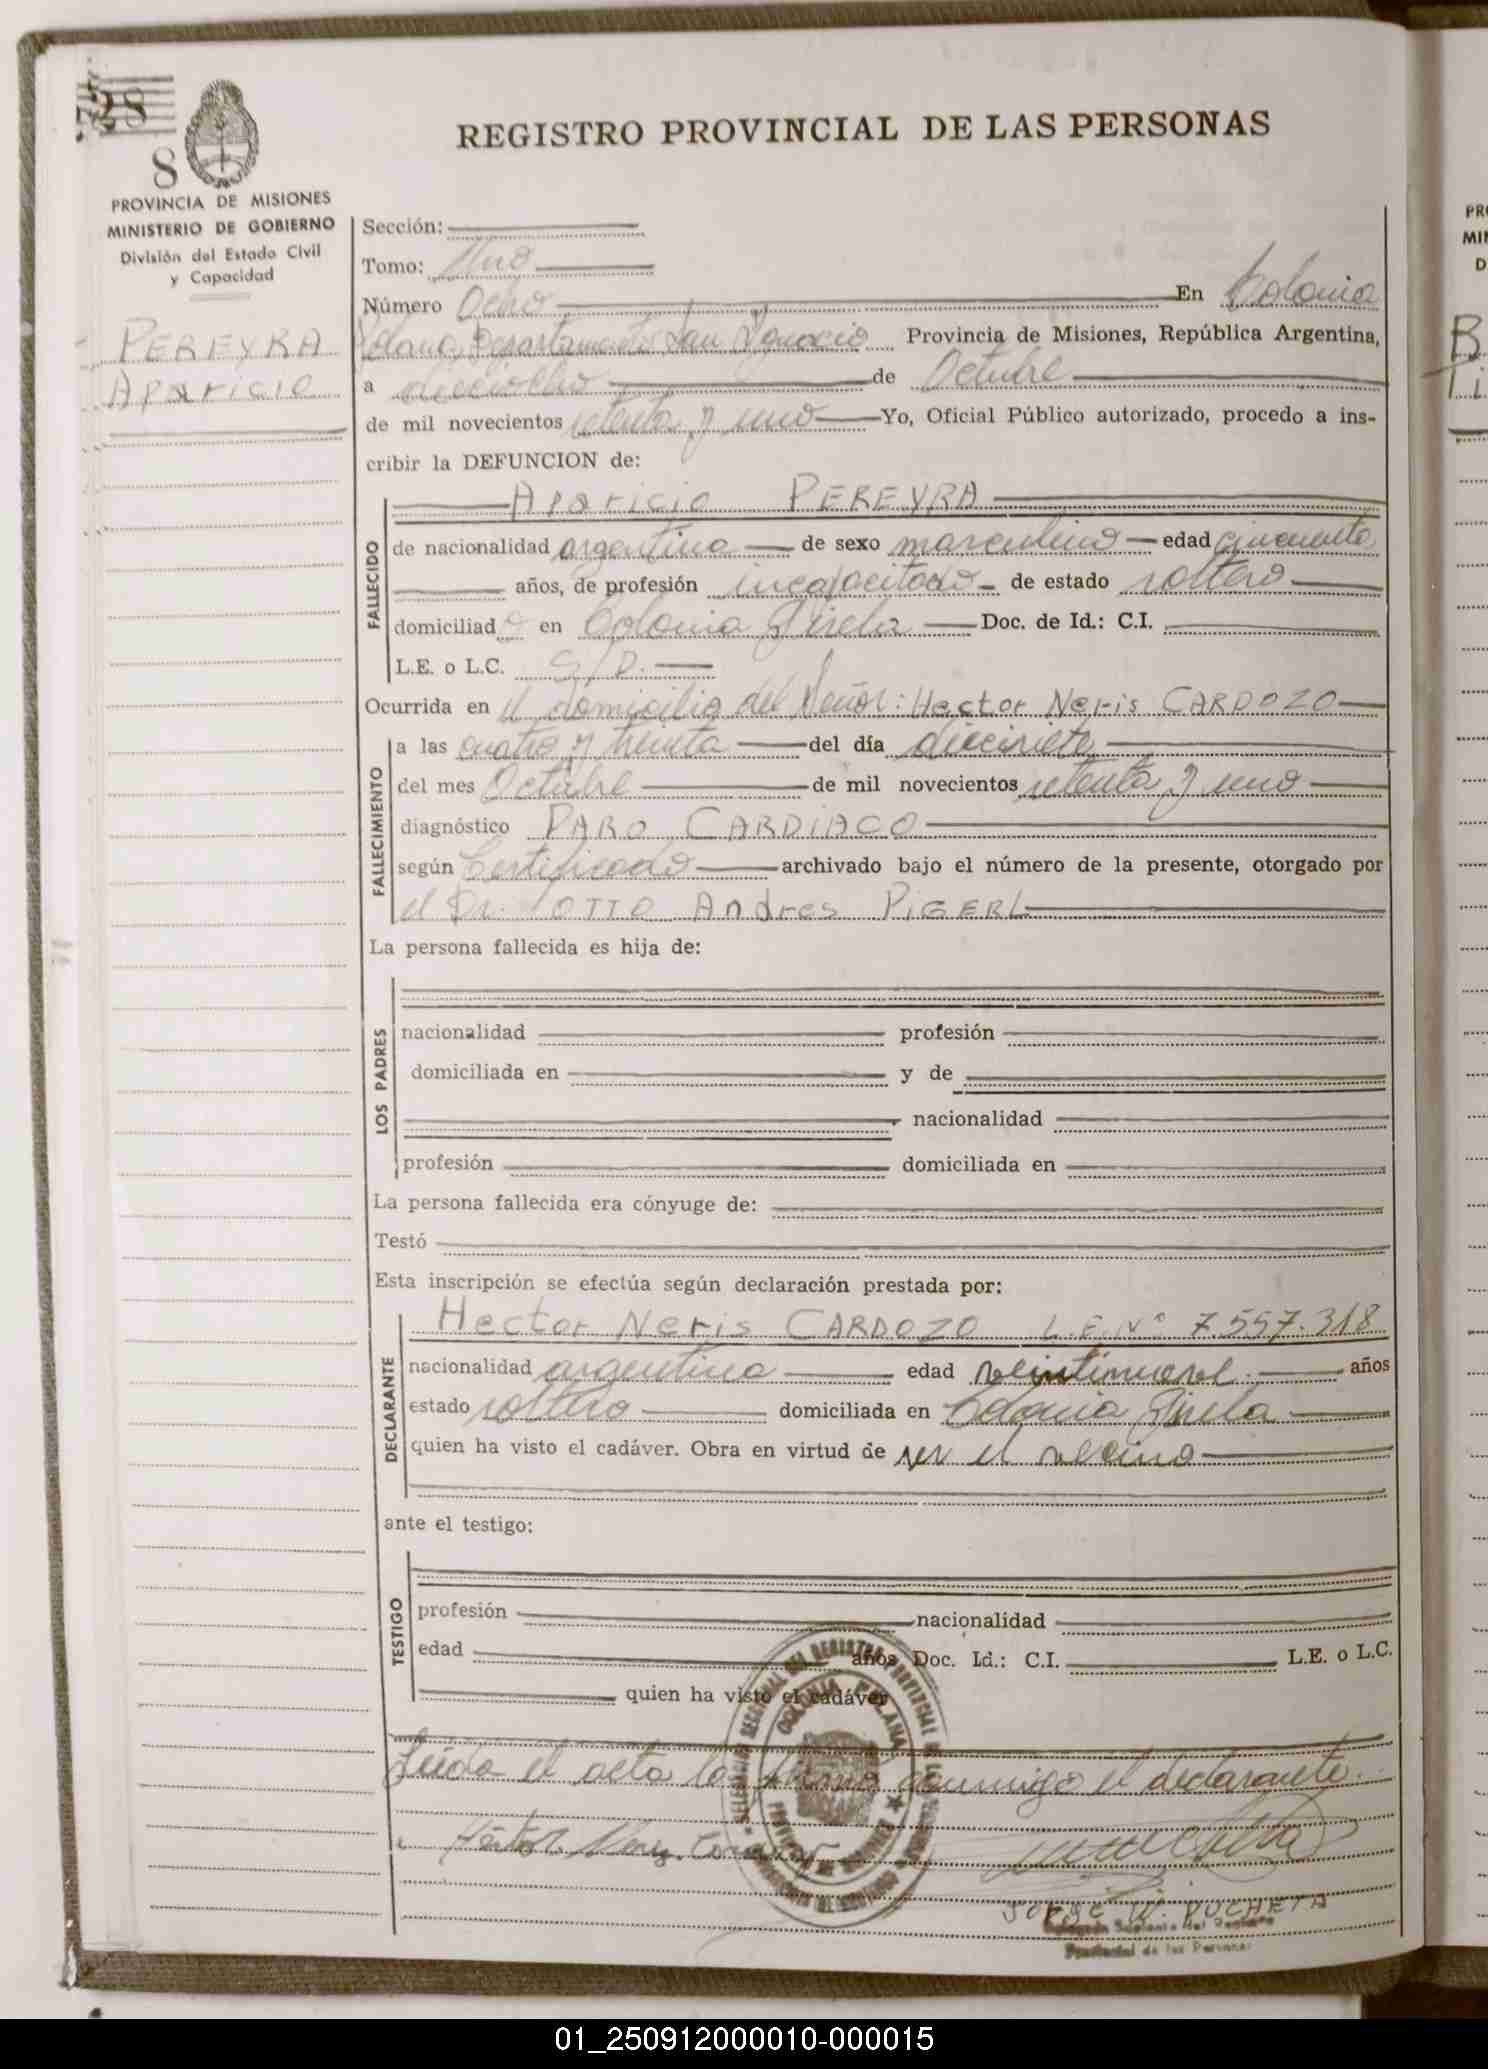 28
8
REGISTRO PROVINCIAL DE LAS PERSONAS
PROVINCIA DE MISIONES
MINISTERIO DE GOBIERNO
División del Estado Civil
y Capacidad
PEREYRA
Aparicio
Sección:
Tomo: Uno
Número Ocho En Colonia
Polana, Departamento San Ignacio Provincia de Misiones, República Argentina,
a dieciocho de Octubre
de mil novecientos setenta y uno Yo, Oficial Público autorizado, procedo a ins-
cribir la DEFUNCION de:
FALLECIDO
Aparicio PEREYRA
de nacionalidad argentina de sexo masculino edad cincuenta
años, de profesión incapacitado de estado soltero
domiciliado en Colonia Gisela Doc. de Id.: C.I.
L.E. o L.C. S/D.
Ocurrida en el domicilio del Señor: Hector Neris CARDOZO
FALLECIMIENTO
a las cuatro y treinta del día diecisiete
del mes Octubre de mil novecientos setenta y uno
diagnóstico PARO CARDIACO
según Certificado archivado bajo el número de la presente, otorgado por
el Dr. OTTO Andres PIGERL
La persona fallecida es hija de:
LOS PADRES
nacionalidad profesión
domiciliada en y de
nacionalidad
profesión domiciliada en
La persona fallecida era cónyuge de:
Testó
Esta inscripción se efectúa según declaración prestada por:
DECLARANTE
Hector Neris CARDOZO L.E. Nº 7.557.318
nacionalidad argentina edad veintinueve años
estado soltero domiciliada en Colonia Gisela
quien ha visto el cadáver. Obra en virtud de ser el vecino
ante el testigo:
TESTIGO
profesión nacionalidad
edad años Doc. Id.: C.I. L.E. o L.C.
quien ha visto el cadáver
Leída el acta la firma conmigo el declarante.
COLONIA POLANA
JORGE W. PUCHETA
Suplente del Registro
Provincial de las Personas
PRO
MIN
D
B
Li
01_250912000010-000015